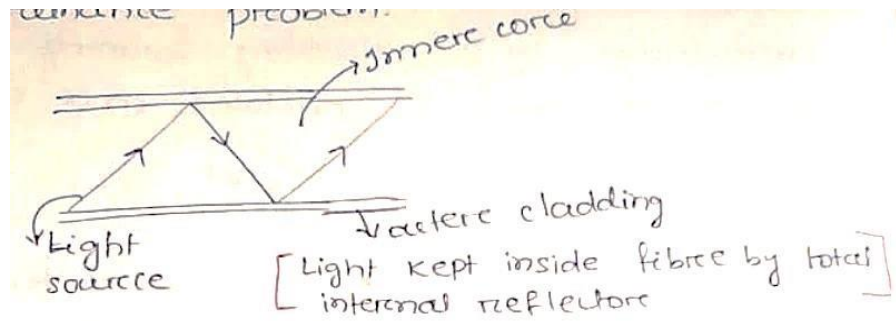 problem.
Innere core
Light
source
outere cladding
[Light kept inside fibree by total]
internal reflectore